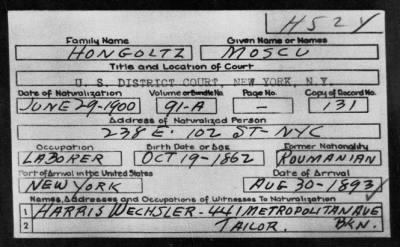 H524
Family Name Given Name or Names
HONGOLTZ MOSCU
Title and Location of Court
U. S. DISTRICT COURT, NEW YORK, N.Y.
Date of Naturalization Volume or Bundle No. Page No. Copy of Record No.
JUNE 29-1900 91-A — 131
Address of Naturalized Person
238 E. 102 ST-NYC
Occupation Birth Date or Age Former Nationality
LABORER OCT 19-1862 ROUMANIAN
Port of Arrival in the United States Date of Arrival
NEW YORK AUG 30-1893
Names, Addresses and Occupations of Witnesses To Naturalization
1 HARRIS WECHSLER-441 METROPOLITAN AVE
2 TAILOR. BKN.